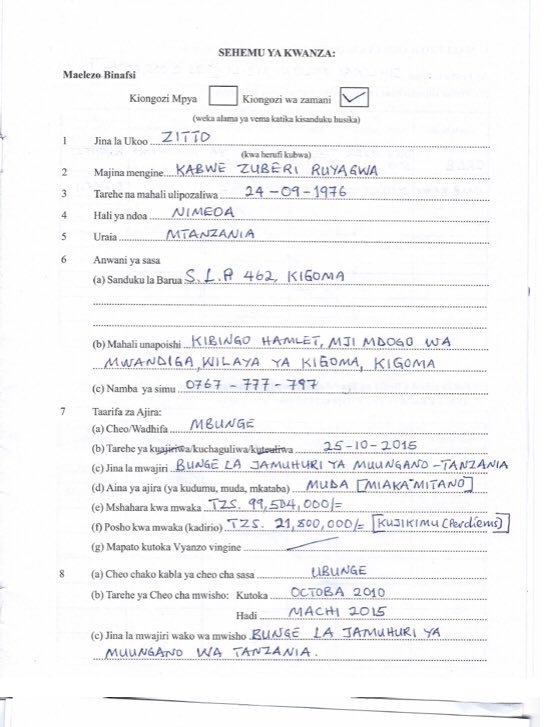 SEHEMU YA KWANZA:
Maelezo Binafsi
Kiongozi Mpya Kiongozi wa zamani ✓
(weka alama ya vema katika kisanduku husika)
1 Jina la Ukoo ZITTO
(kwa herufi kubwa)
2 Majina mengine KABWE ZUBERI RUYAGWA
3 Tarehe na mahali ulipozaliwa 24-09-1976
4 Hali ya ndoa NIMEOA
5 Uraia MTANZANIA
6 Anwani ya sasa
(a) Sanduku la Barua S.L.P 462, KIGOMA
(b) Mahali unapoishi KIBINGO HAMLET, MJI MDOGO WA
MWANDIGA, WILAYA YA KIGOMA, KIGOMA
(c) Namba ya simu 0767-777-797
7 Taarifa za Ajira:
(a) Cheo/Wadhifa MBUNGE
(b) Tarehe ya kuajiriwa/kuchaguliwa/kuteuliwa 25-10-2015
(c) Jina la mwajiri BUNGE LA JAMUHURI YA MUUNGANO-TANZANIA
(d) Aina ya ajira (ya kudumu, muda, mkataba) MUDA [MIAKA MITANO]
(e) Mshahara kwa mwaka TZS. 99,504,000/=
(f) Posho kwa mwaka (kadirio) TZS. 21,800,000/= [KUJIKIMU (Perdiems)]
(g) Mapato kutoka Vyanzo vingine
8 (a) Cheo chako kabla ya cheo cha sasa UBUNGE
(b) Tarehe ya Cheo cha mwisho: Kutoka OCTOBA 2010
Hadi MACHI 2015
(c) Jina la mwajiri wako wa mwisho BUNGE LA JAMUHURI YA
MUUNGANO WA TANZANIA.